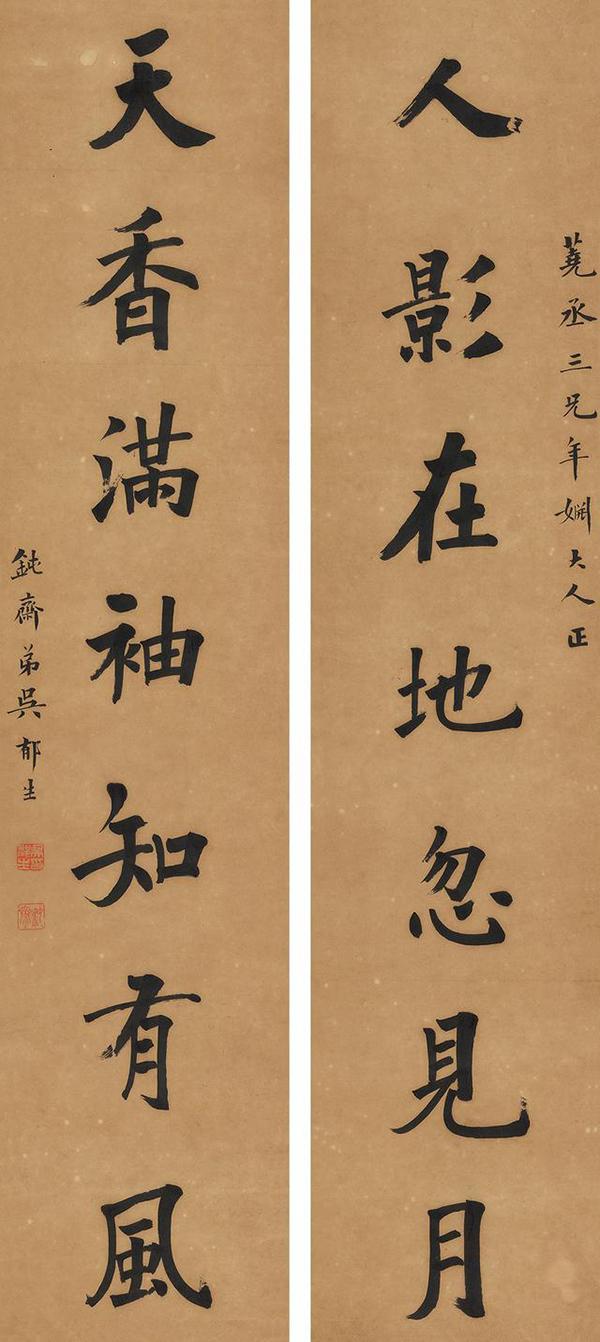 蕘丞三兄年嫻大人正
人影在地忽見月
天香滿袖知有風
鈍齋弟吳郁生